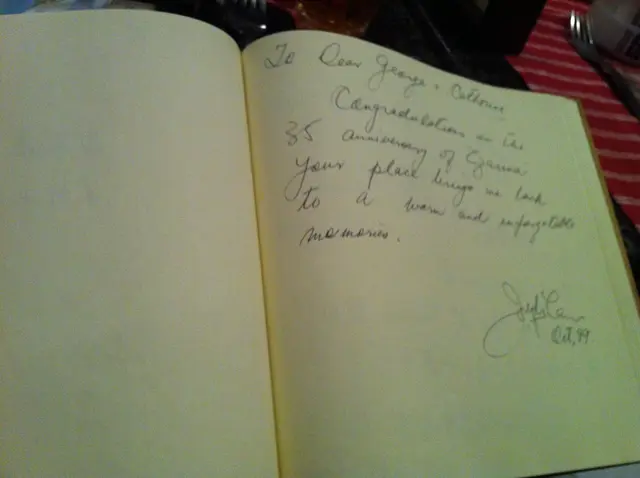 To Dear George & Catherine
Congradulations on the
35 anniversary of Czarina
Your place brings me back
to a warm and unforgetable
momories.
Oct, 99